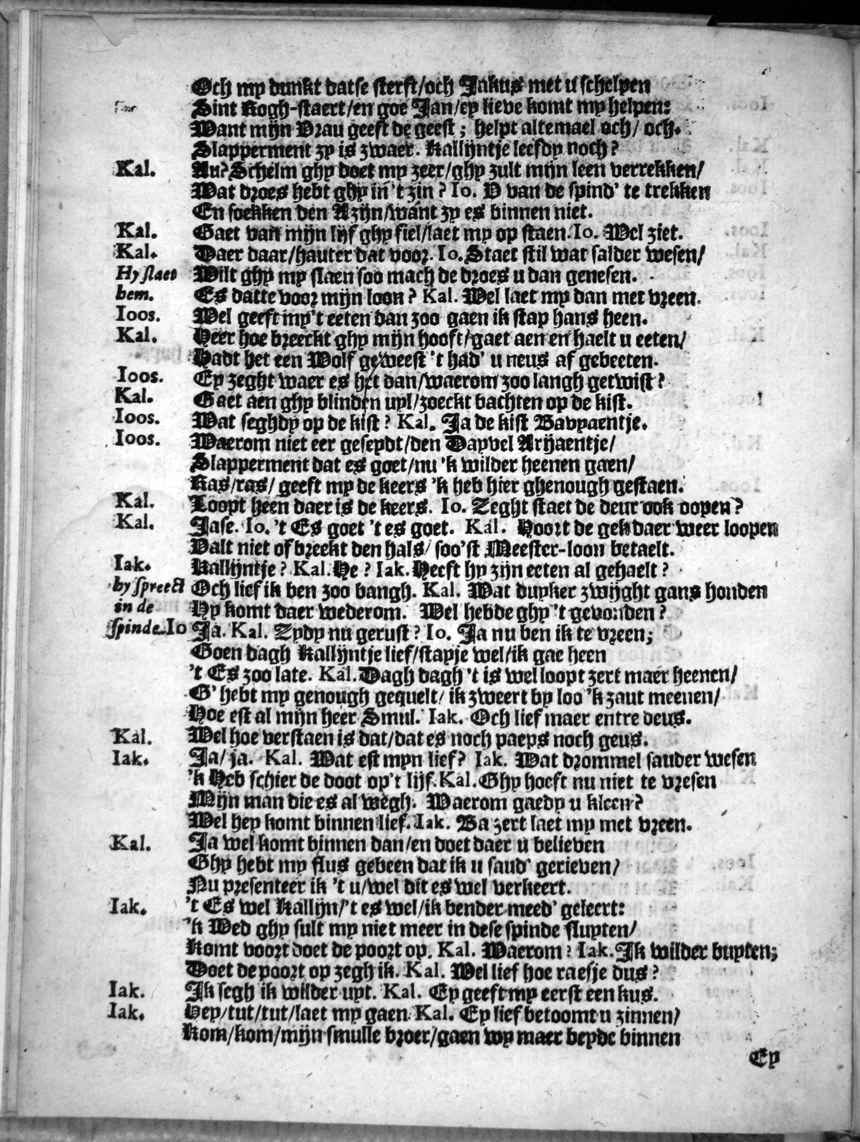 Och my dunkt datse sterft/och Jakus met u schelpen
Sint Kogh-staert/en goe Jan/ey lieve komt my helpen:
Want mijn Vrau geeft de geest; helpt altemael och/ och.
Slapperment zy is zwaer. Kallijntje leefdy noch?
Kal. Au? Schelm ghy doet my zeer/ghy zult mijn leen verrekken/
Wat droes hebt ghy in 't zin? Io. U van de spind' te trekken
En soekken den Azijn/want zy es binnen niet.
Kal. Gaet van mijn lijf ghy fiel/laet my op staen. Io. Wel ziet.
Kal. Daer daar/hauter dat voor. Io. Staet stil wat salder wesen/
Hy slaet Wilt ghy my slaen soo mach de droes u dan genesen.
hem. Es datte voor mijn loon? Kal. Wel laet my dan met vreen.
Ioos. Wel geeft my't eeten dan zoo gaen ik stap hans heen.
Kal. Heer hoe breeckt ghy mijn hooft/gaet aen en haelt u eeten/
Hadt het een Wolf geweest 't had' u neus af gebeeten.
Ioos. Ey zeght waer es het dan/waerom zoo langh getwist?
Kal. Gaet aen ghy blinden uyl/zoeckt bachten op de kist.
Ioos. Wat seghdy op de kist? Kal. Ja de kist Bavyaentje.
Ioos. Waerom niet eer geseydt/den Dayvel Arjaentje/
Slapperment dat es goet/nu 'k wilder heenen gaen/
Ras/ras/ geeft my de keers 'k heb hier ghenough gestaen.
Kal. Loopt heen daer is de keers. Io. Zeght staet de deur ook oopen?
Kal. Jase. Io. 't Es goet 't es goet. Kal. Hoort de gek daer weer loopen
Valt niet of breekt den hals/ soo'st Meester-loon betaelt.
Iak. Kallijntje? Kal. He? Iak. Heeft hy zijn eeten al gehaelt?
hy spreect Och lief ik ben zoo bangh. Kal. Wat duyker zwijght gans honden
in de Hy komt daer wederom. Wel hebde ghy 't gevonden?
spinde. Io Ja. Kal. Zydy nu gerust? Io. Ja nu ben ik te vreen;
Goen dagh Kallijntje lief/stapje wel/ik gae heen
't Es zoo late. Kal. Dagh dagh 't is wel loopt zert maer heenen/
G' hebt my genough gequelt/ ik zweert by loo 'k zaut meenen/
Hoe est al mijn heer Smul. Iak. Och lief maer entre deus.
Kal. Wel hoe verstaen is dat/dat es noch paeps noch geus.
Iak. Ja/ ja. Kal. Wat est myn lief? Iak. Wat drommel sauder wesen
'k Heb schier de doot op't lijf. Kal. Ghy hoeft nu niet te vresen
Mijn man die es al wegh. Waerom gaedy u kleen?
Wel hey komt binnen lief. Iak. Ba zert laet my met vreen.
Kal. Ja wel komt binnen dan/en doet daer u believen
Ghy hebt my flus gebeen dat ik u saud' gerieven/
Nu presenteer ik 't u/wel dit es wel verkeert.
Iak. 't Es wel Kallijn/'t es wel/ik bender meed' geleert:
'k Wed ghy sult my niet meer in dese spinde sluyten/
Komt voort doet de poort op. Kal. Waerom? Iak. Ik wilder buyten;
Doet de poort op zegh ik. Kal. Wel lief hoe raesje dus?
Iak. Ik segh ik wilder uyt. Kal. Ey geeft my eerst een kus.
Iak. Hey/tut/tut/laet my gaen. Kal. Ey lief betoomt u zinnen/
Kom/kom/mijn smulle broer/gaen wy maer beyde binnen
Ey